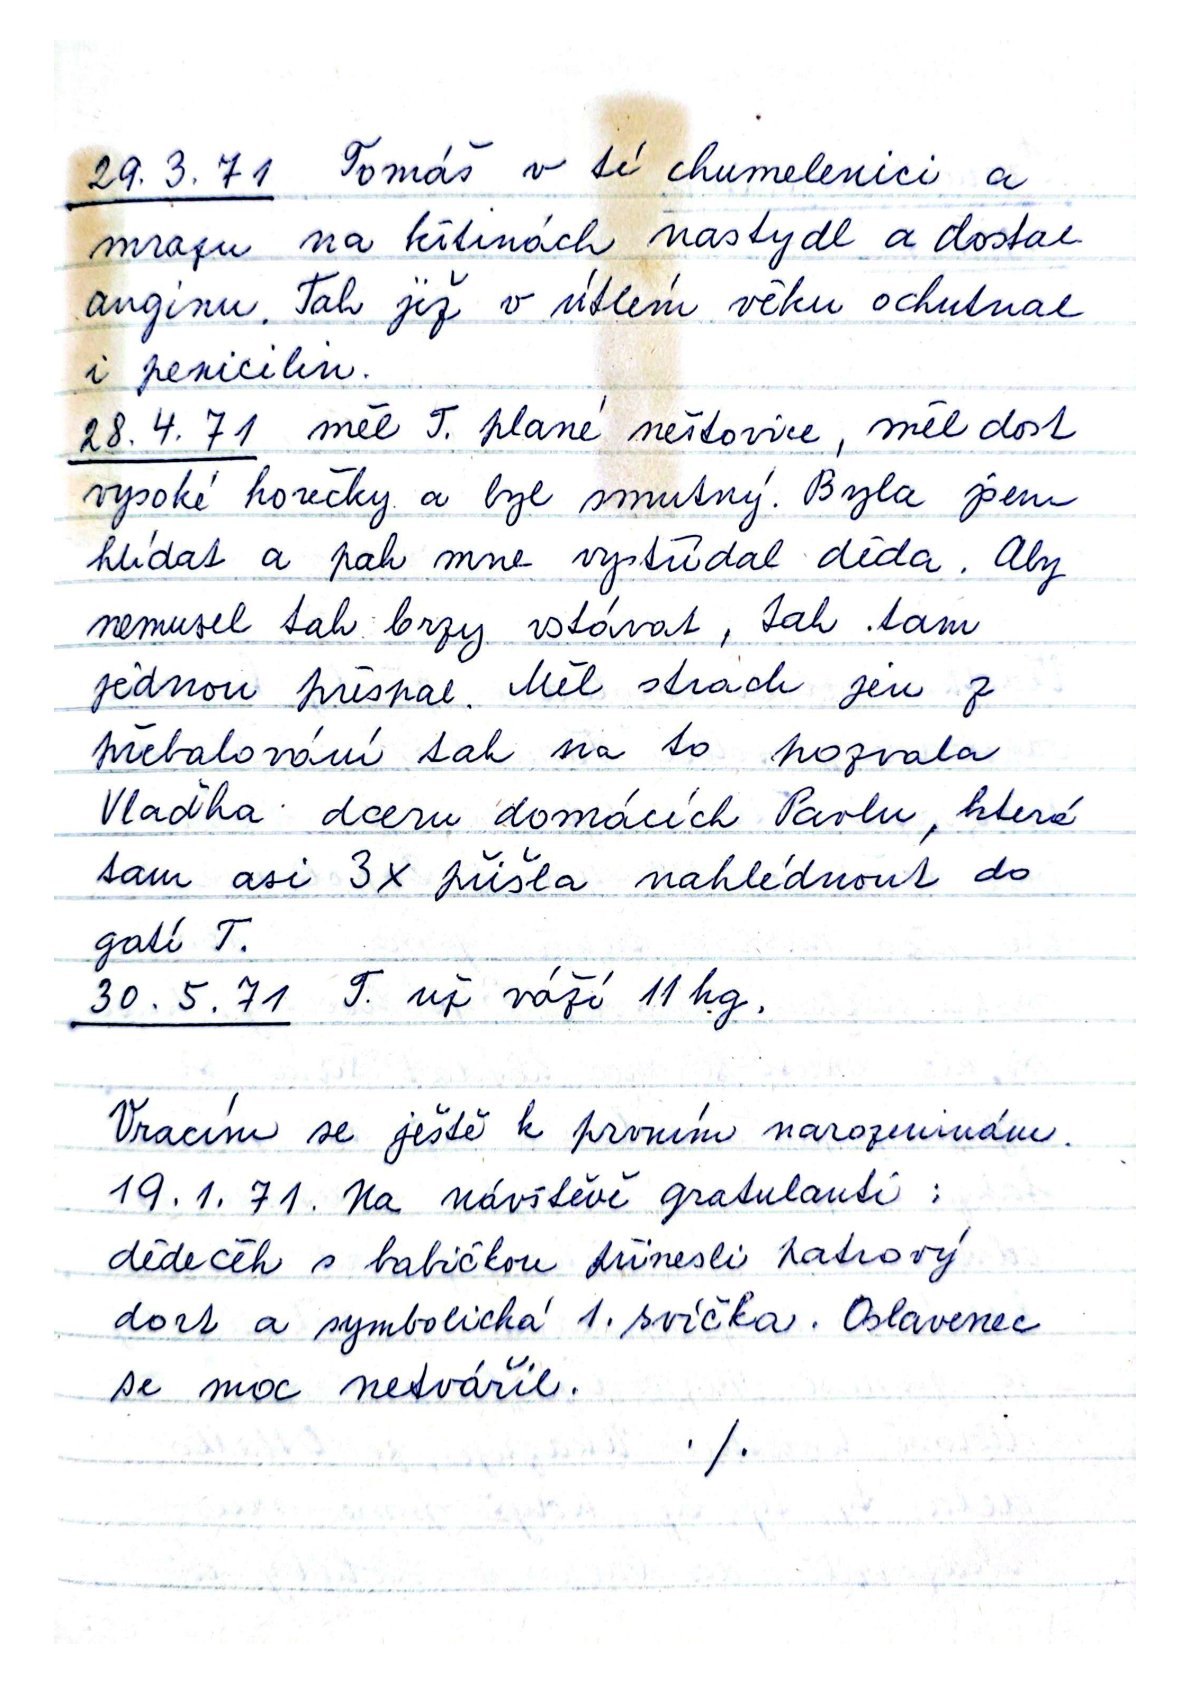 29.3.71 Tomáš v té chumelenici a
mrazu na křtinách nastydl a dostal
anginu. Tak již v útlém věku ochutnal
i penicilin.
28.4.71 měl T. plané neštovice, měl dost
vysoké horečky a byl smutný. Byla jsem
hlídat a pak mne vystřídal děda. Aby
nemusel tak brzy vstávat, tak tam
jednou přespal. Měl strach jen z
přebalování tak na to pozvala
Vlaďka dceru domácích Pavlu, která
tam asi 3x přišla nahlédnout do
gatí T.
30.5.71 T. už váží 11 kg.
Vracím se ještě k prvním narozeninám.
19.1.71. Na návštěvě gratulanti:
dědeček s babičkou přinesli patrový
dort a symbolická 1. svíčka. Oslavenec
se moc netvářil.
./.